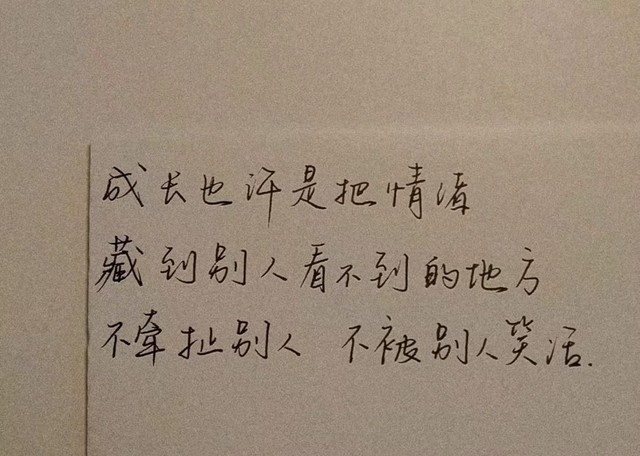 成长也许是把情绪
藏到别人看不到的地方
不牵扯别人 不被别人笑话.